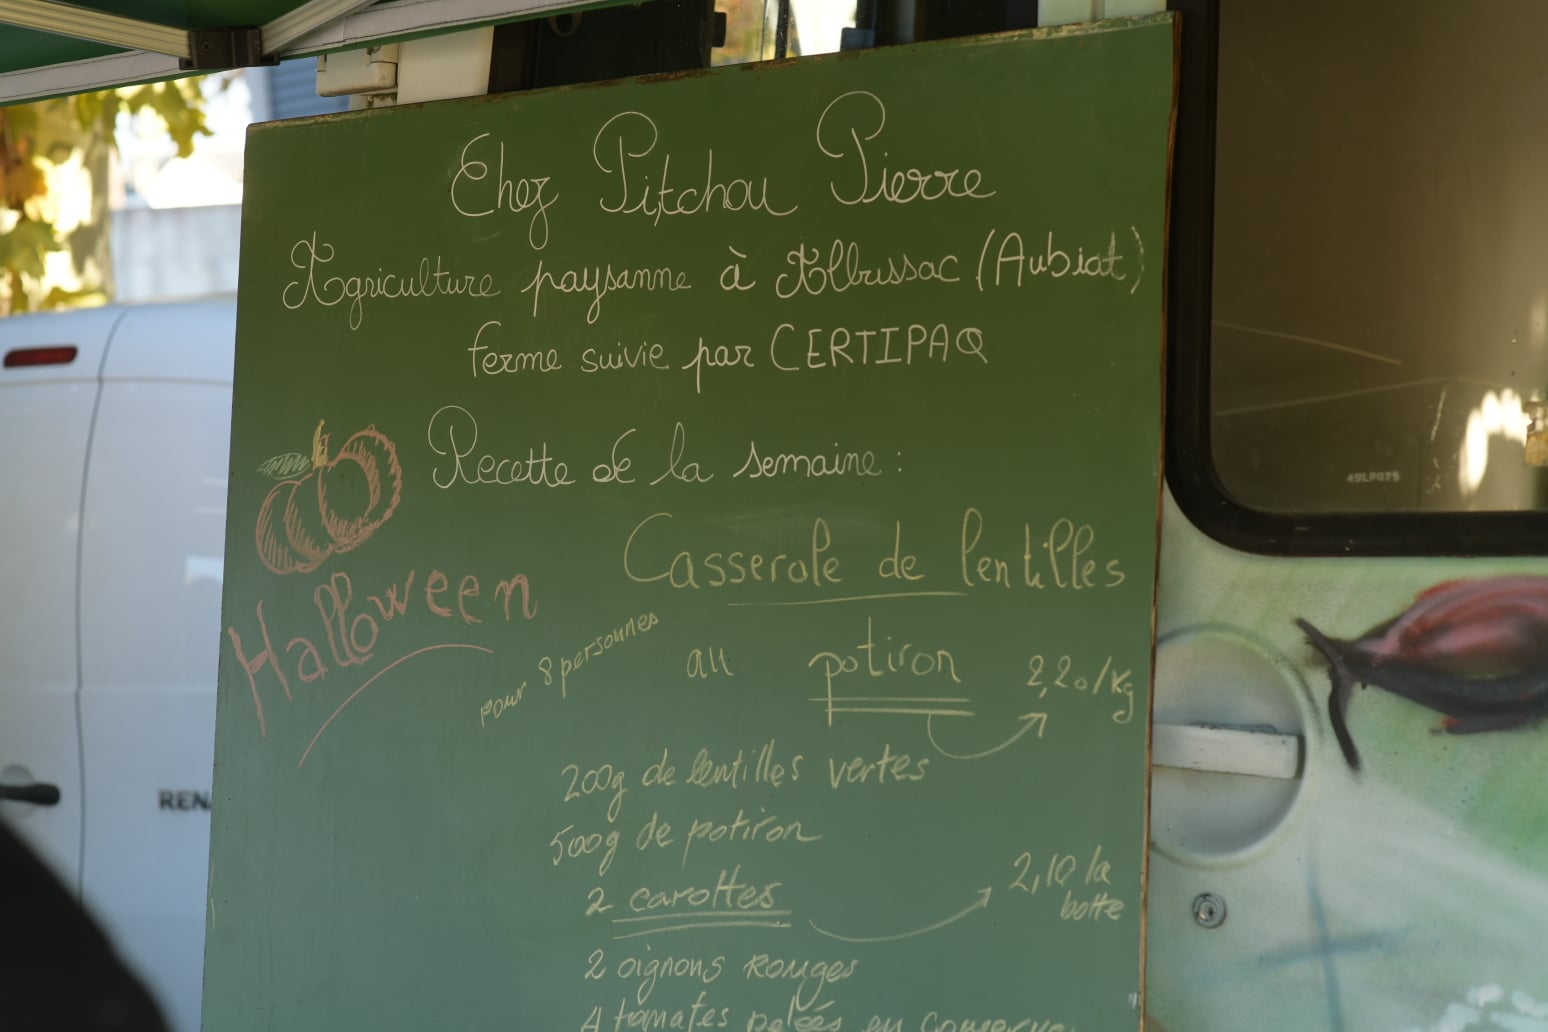 Chez Pitchou Pierre
Agriculture paysanne à Albussac (Aubiat)
ferme suivie par CERTIPAQ
Recette de la semaine :
Halloween
Casserole de lentilles
pour 8 personnes
au potiron 2,20/Kg
200g de lentilles vertes
500g de potiron
2 carottes 2,10 la botte
2 oignons rouges
4 tomates pelées en conserve
REN
49LP075